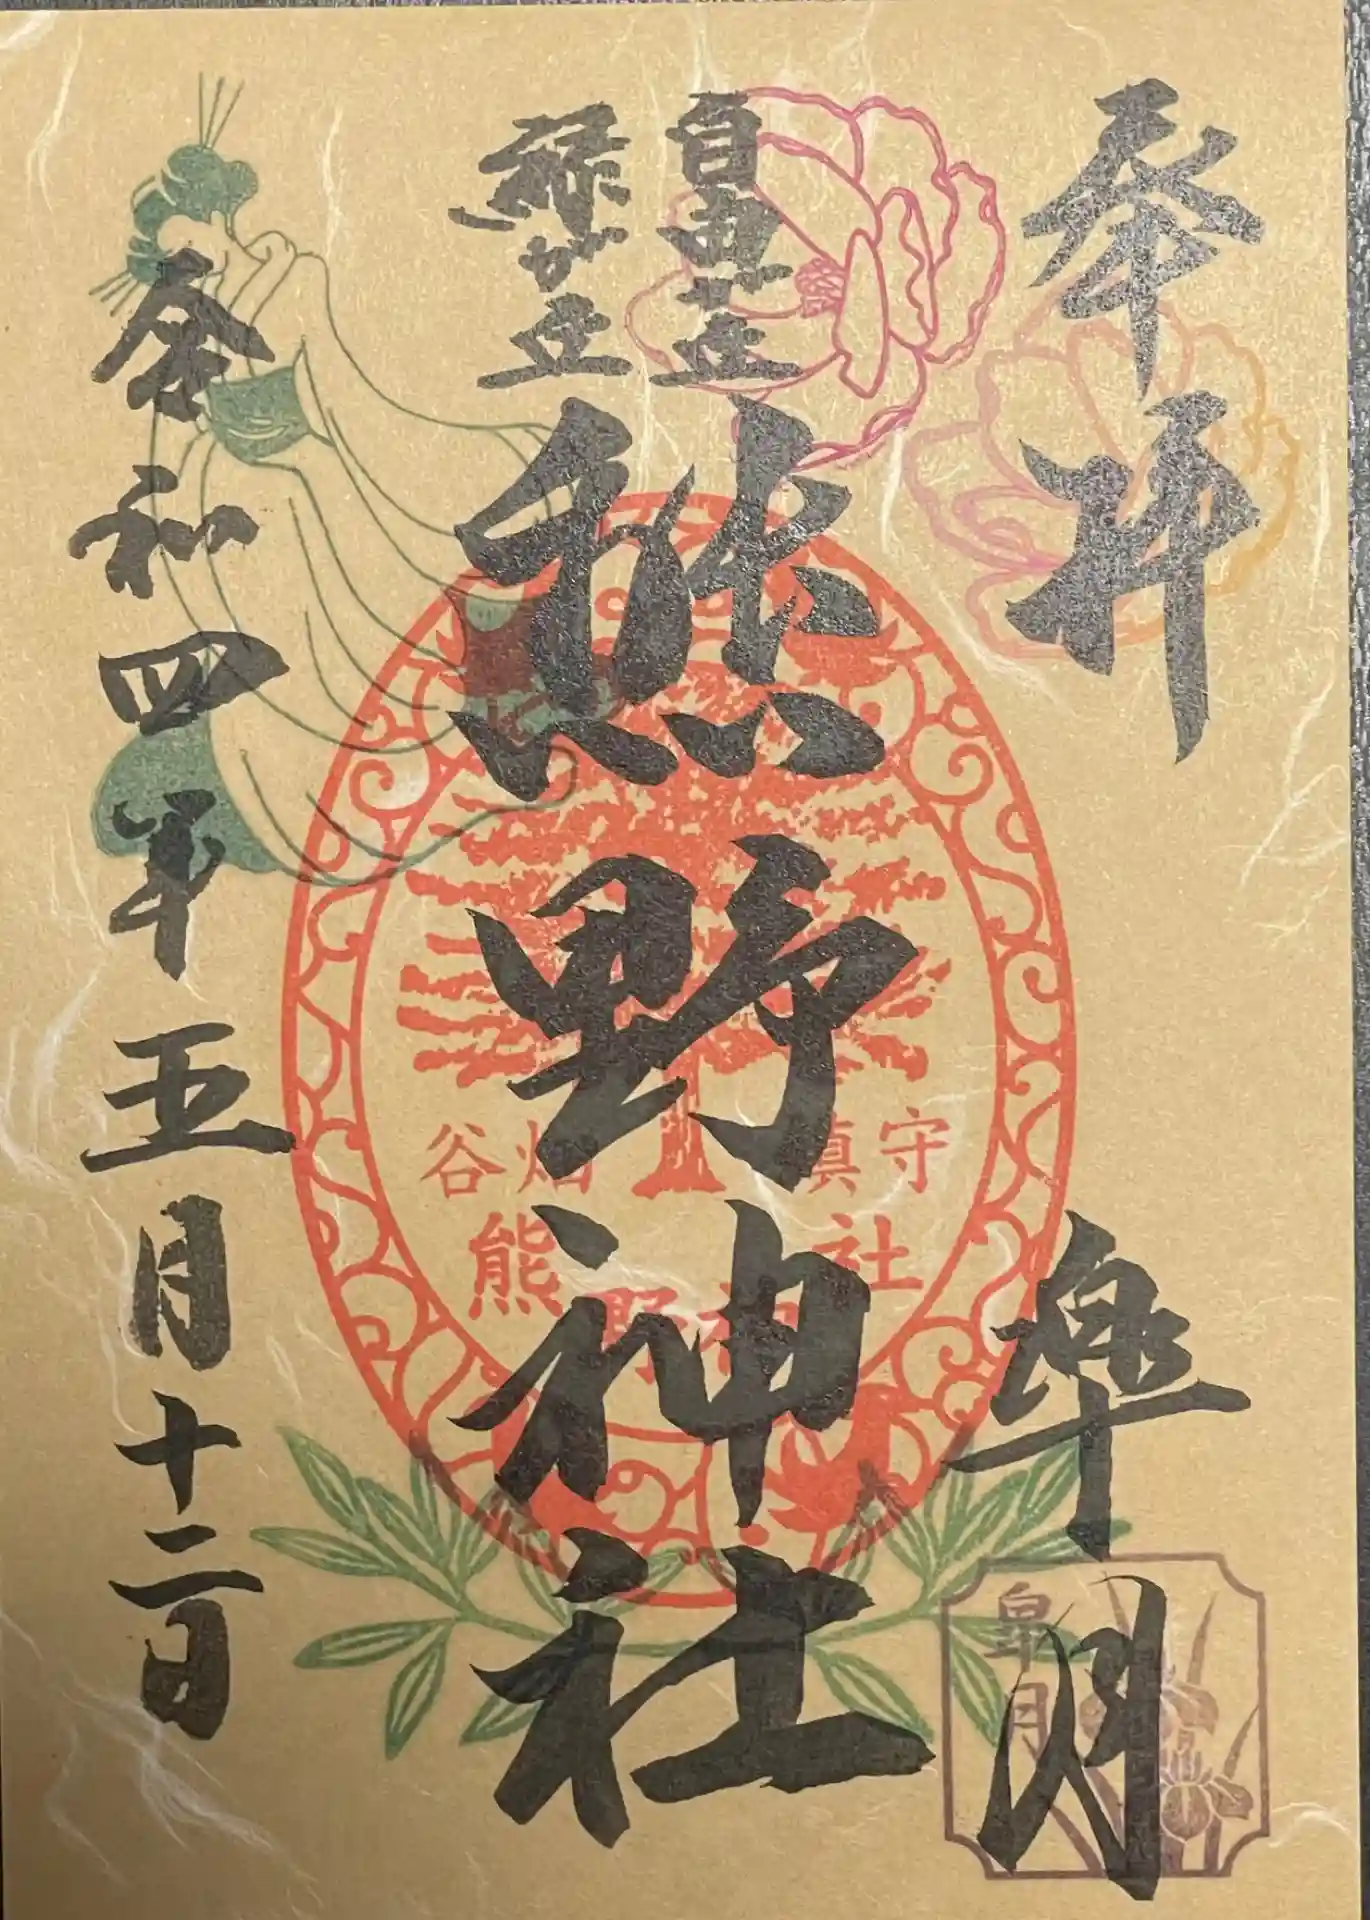 奉拝
皐月
皐月
自由が丘
緑が丘
熊野神社
谷畑鎮守
熊野神社
令和四年五月十二日